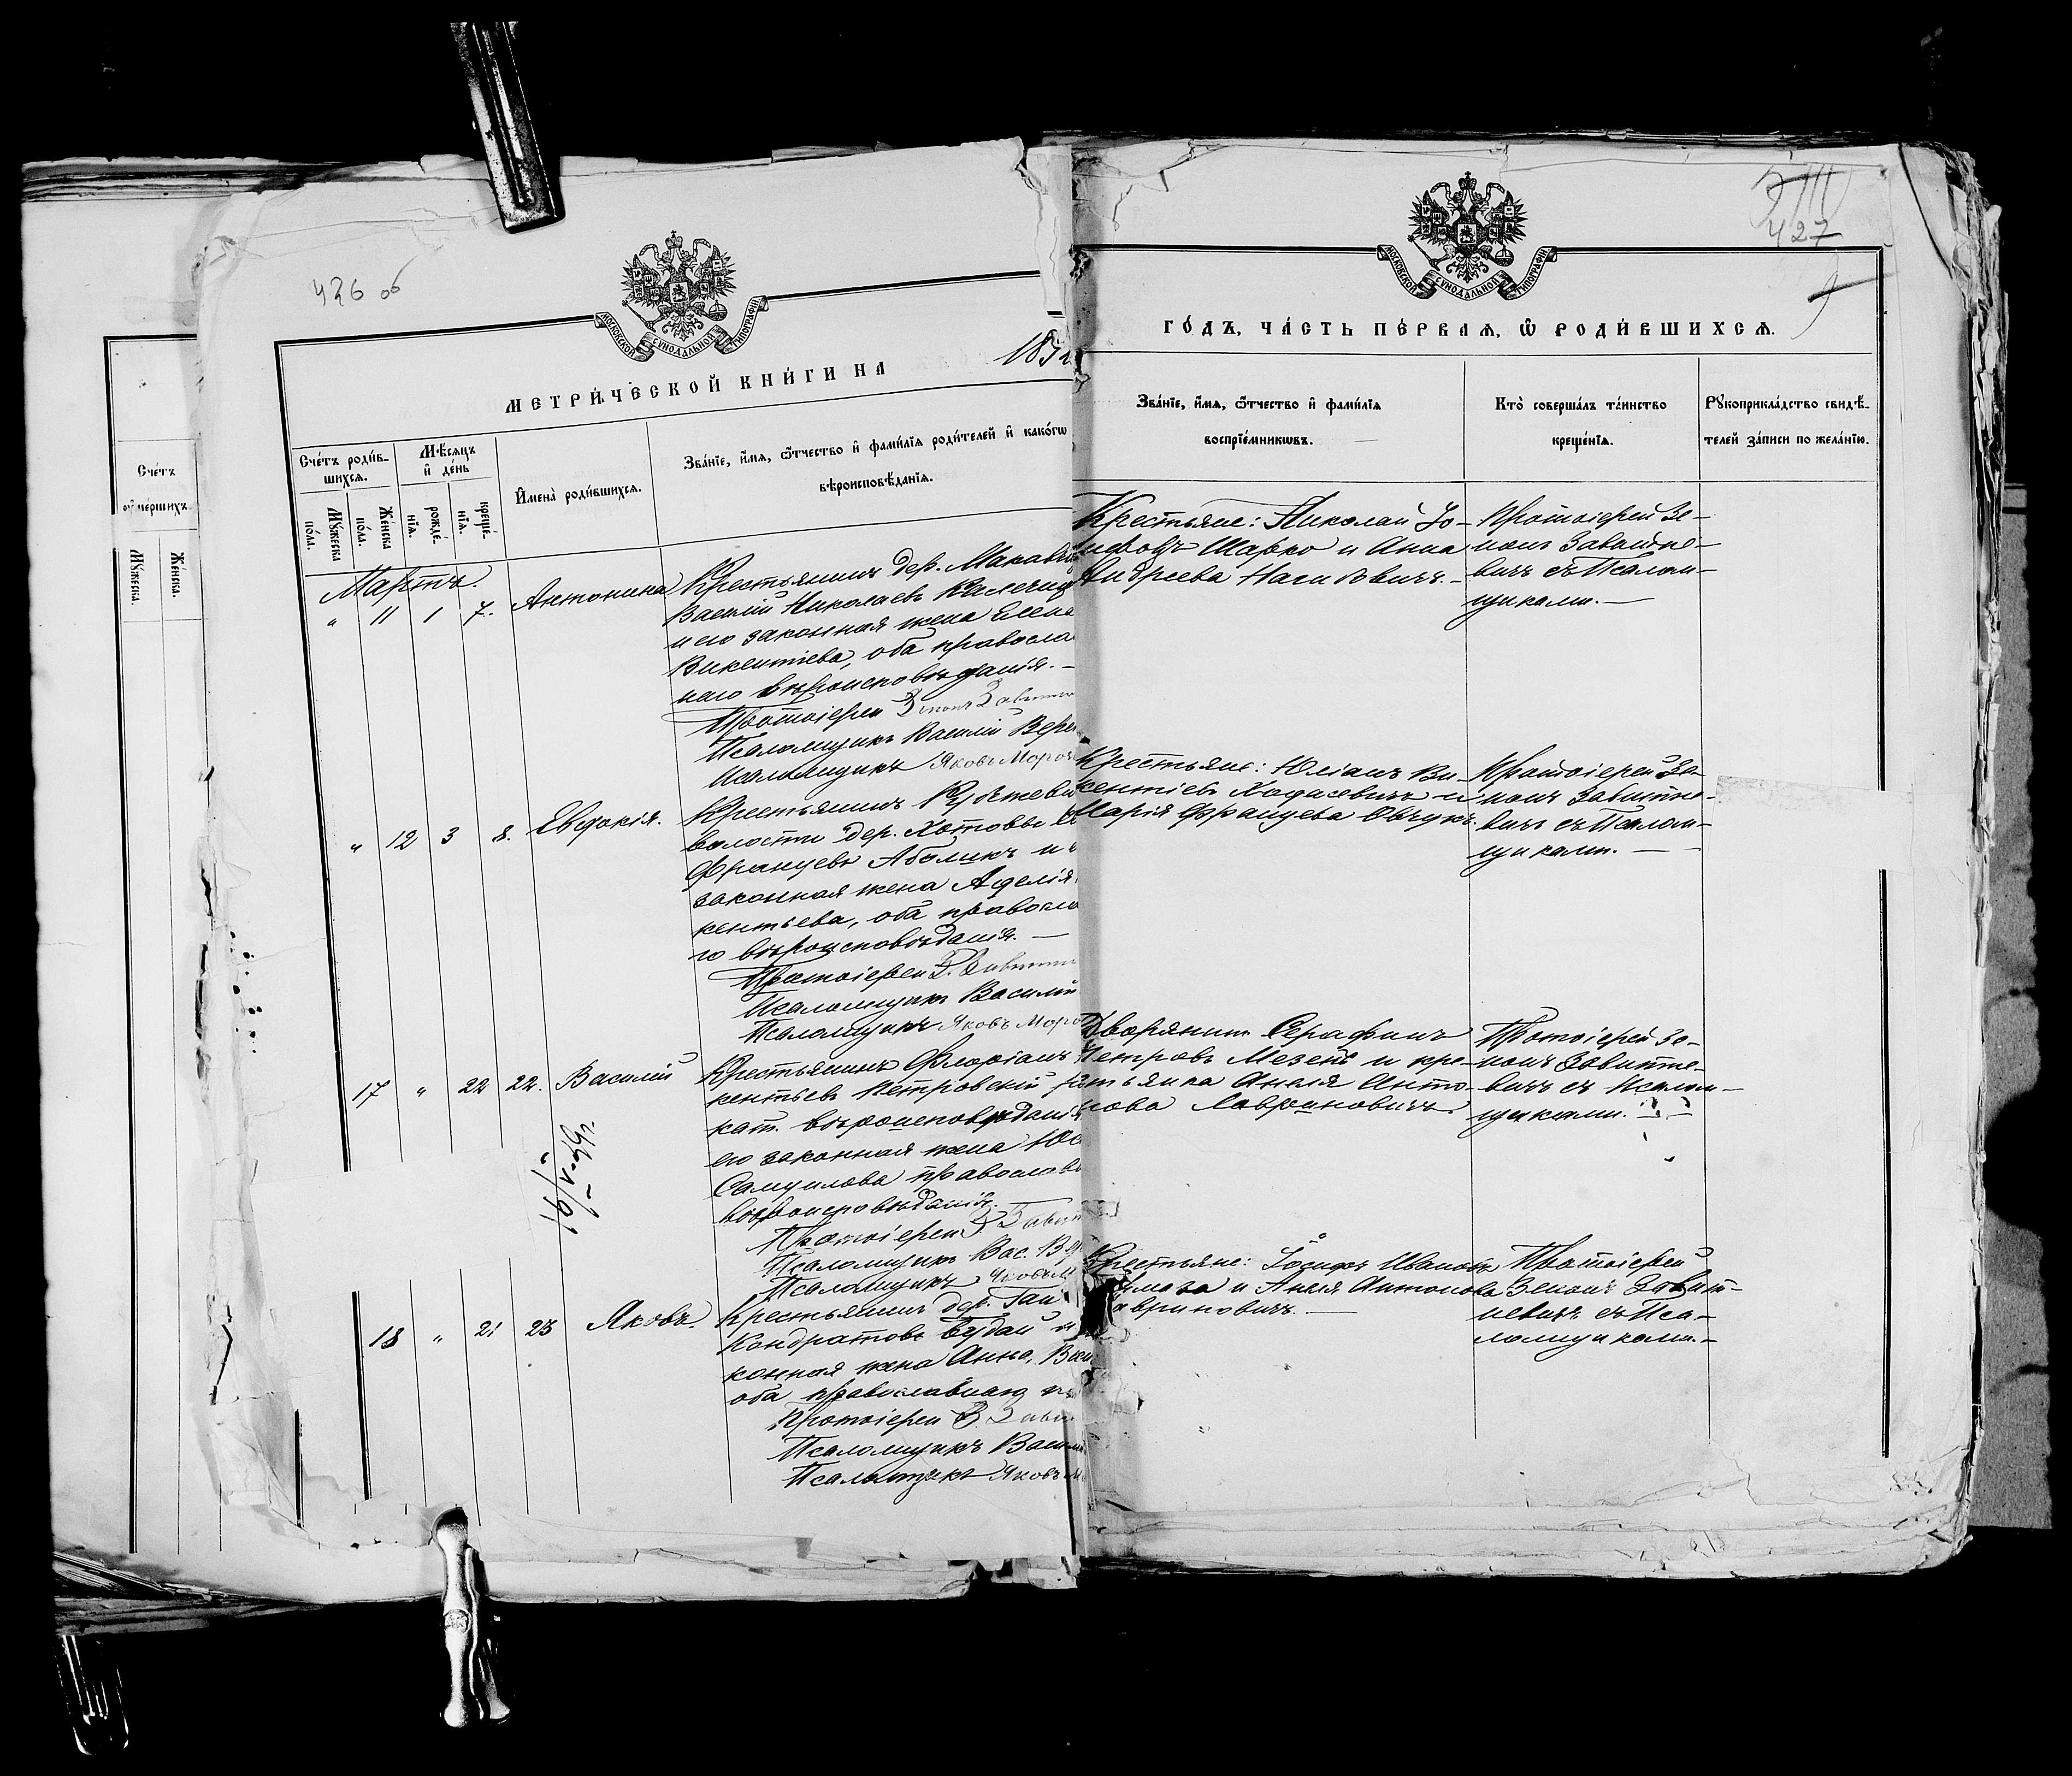 426 об
МОСКОВСКОЙ СѴНОДАЛЬНОЙ ТИПОГРАФІИ
МЕТРИ́ЧЕСКОЙ КНИ́ГИ НА
Сче́тъ
ᲂумершихъ.
Мꙋ́жеска.
Же́нска.
Сче́тъ роди́в-
шихсѧ.
Мѣ́сѧцъ
и҆ де́нь
И҆мена̀ роди́вшихсѧ.
Зва́нїе, и҆́мѧ, ѻ҆́тчество и҆ фами́лїѧ роди́телей и҆ како́гѡ
вѣроисповѣ́данїѧ.
Мꙋ́жеска
по́ла.
Же́нска
по́ла.
рожде́-
нїѧ.
креще́-
нїѧ.
Мартъ.
" 11 1 7. Антонина
Крестьянинъ дер.
Василій Николаевъ
и его законная жена Елена
Викентіева, оба правосла
наго вѣроисповѣданія. —
Протоіерей Зенонъ
Псаломщикъ Василій
Псаломщикъ Яковъ
" 12 3 8. Евдокія.
Крестьянинъ
волости дер. Хотовъ
Францевъ Аболикъ и
законная жена Аделія
кентьева, оба правосла
го вѣроисповѣданія. —
Протоіерей З.
Псаломщикъ Василій
Псаломщикъ Яковъ
17 " 22 22. Василій
Крестьянинъ Флоріанъ
кентьевъ Петровскій
кат. вѣроисповѣданія
его законная жена
Самуилова православ
вѣроисповѣданія.
Протоіерей З.
Псаломщикъ Вас.
Псаломщикъ Яковъ
18 " 21 25 Яковъ.
Крестьянинъ дер.
Кондратовъ Будай и
конная жена Анна,
оба православнаго
Протоіерей З.
Псаломщикъ
Псаломщикъ Яковъ
427
МОСКОВСКОЙ СѴНОДАЛЬНОЙ ТИПОГРАФІИ
ГО́ДЪ, ЧА́СТЬ ПЕ́РВАѦ, Ѡ҆ РОДИ́ВШИХСѦ.
Зва́нїе, и҆́мѧ, ѻ҆́тчество и҆ фами́лїѧ
воспрїе́мникѡвъ.
Кто̀ соверша́лъ та́инство
креще́нїѧ.
Рꙋкоприкла́дство свидѣ́-
телей за́писи по жела́нїю.
Крестьяне: Николай Іо-
сифовъ Шарко и Анна
Андреева
Протоіерей Зе-
нонъ Завитне-
вичъ съ Псалом-
щиками. —
Крестьяне: Юліанъ Ви-
кентіевъ Ходасевичъ и
Марія Францева
Протоіерей Зе-
нонъ Завитне-
вичъ съ Псалом-
щиками. —
Дворянинъ Серафимъ
Петровъ Мезенъ и кре-
стьянка Анеля Анто-
нова Лавриновичъ.
Протоіерей Зе-
нонъ Завитне-
вичъ съ Псалом-
щиками. —
Крестьяне: Іосифъ Ивановъ
и Анеля Антонова
Лавриновичъ. —
Протоіерей
Зенонъ Завит-
невичъ съ Пса-
ломщиками. —